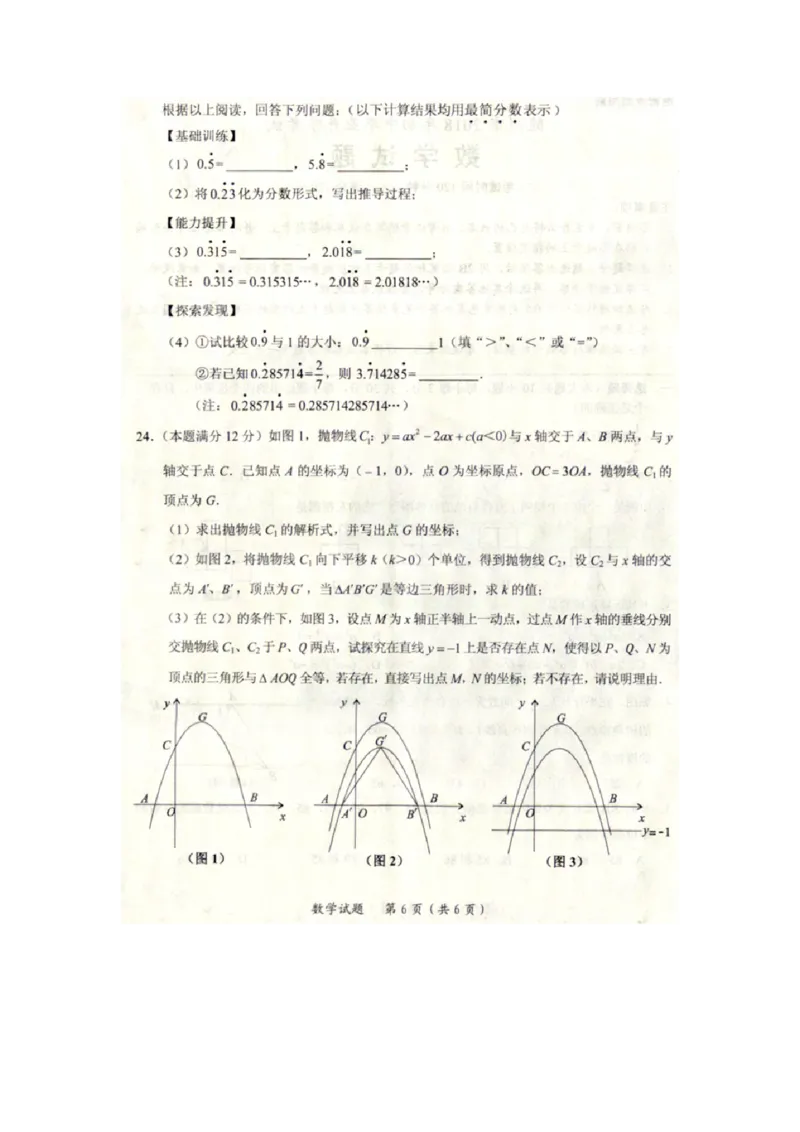 根据以上阅读，回答下列问题：（以下计算结果均用最简分数表示）
【基础训练】
（1）0.5̇=________，5.8̇=________；
（2）将0.2̇3̇化为分数形式，写出推导过程；
【能力提升】
（3）0.3̇15̇=________，2.01̇8̇=________；
（注：0.3̇15̇=0.315315…，2.01̇8̇=2.01818…）
【探索发现】
（4）①试比较0.9̇与1的大小：0.9̇________1（填“＞”、“＜”或“=”）
②若已知0.2̇85714̇=2/7，则3.7̇14285̇=________．
（注：0.2̇85714̇=0.285714285714…）
24．（本题满分12分）如图1，抛物线C₁：y=ax²－2ax+c(a<0)与x轴交于A、B两点，与y
轴交于点C．已知点A的坐标为（－1，0），点O为坐标原点，OC=3OA，抛物线C₁的
顶点为G．
（1）求出抛物线C₁的解析式，并写出点G的坐标；
（2）如图2，将抛物线C₁向下平移k（k＞0）个单位，得到抛物线C₂，设C₂与x轴的交
点为A′、B′，顶点为G′，当ΔA′B′G′是等边三角形时，求k的值；
（3）在（2）的条件下，如图3，设点M为x轴正半轴上一动点，过点M作x轴的垂线分别
交抛物线C₁、C₂于P、Q两点，试探究在直线y=－1上是否存在点N，使得以P、Q、N为
顶点的三角形与ΔAOQ全等，若存在，直接写出点M，N的坐标；若不存在，请说明理由．
y G C A O B x
y G C G′ A A′ O B′ B x
y G C A O B x y=-1
（图1）
（图2）
（图3）
数学试题 第6页（共6页）